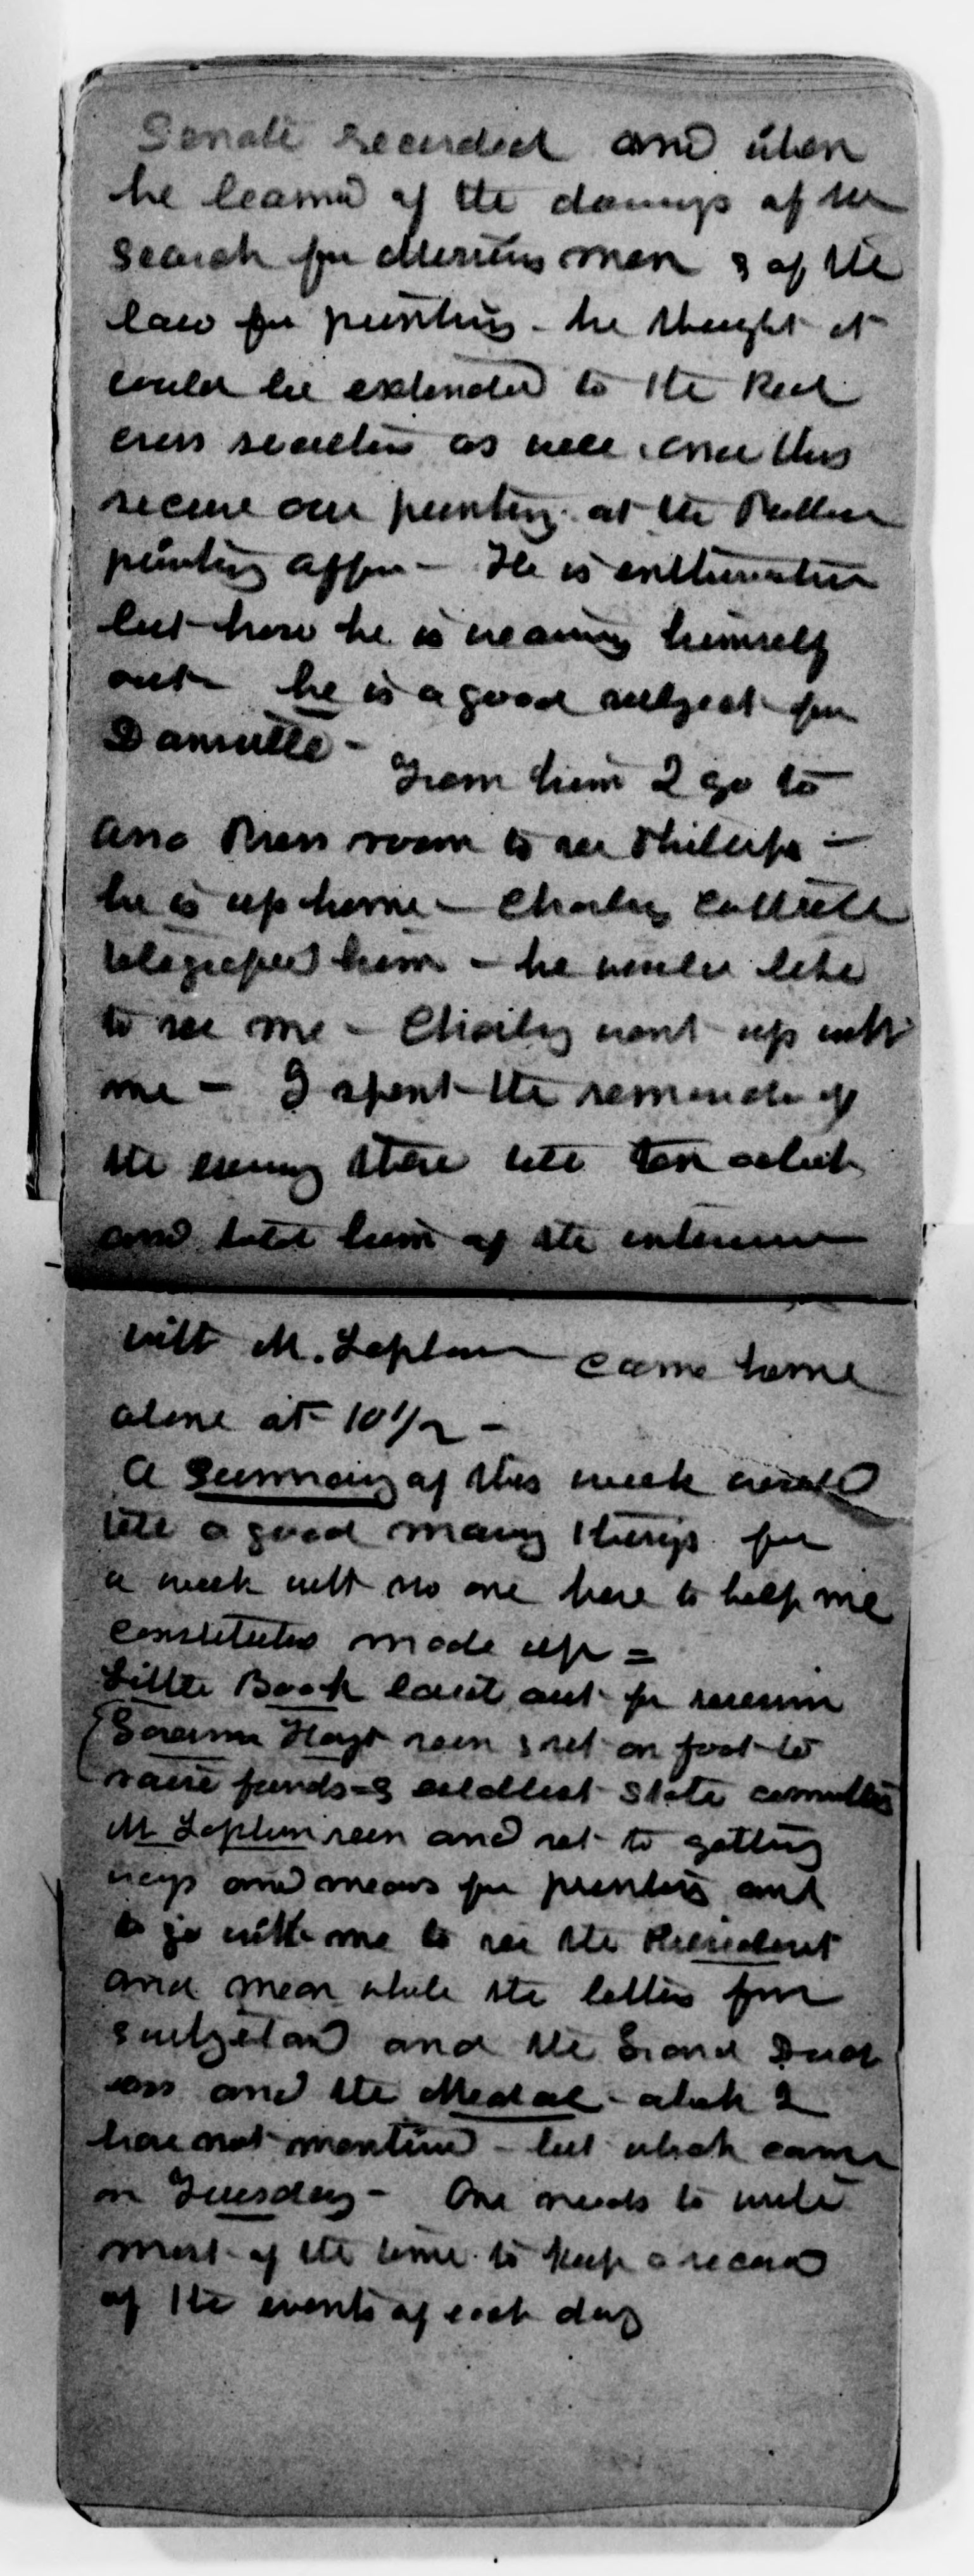 Senate recorded and when
he learned of the doings of the
search for missing men & of the
law for printing - he thought it
could be extended to the Red
cross societies as well and thus
secure our printing at the Public
printing office - He is enthusiastic
but how he is wearing himself
out he is a good subject for
Dansville -
From him I go to
Asso Press room to see Phillips -
he is up home - Charley
telegraphed him - he would like
to see me - Charley went up with
me - I spent the remainder of
the evening there till ten oclock
and told him of the interview
with M. Laplum came home
alone at 10 1/2 -
A Summary of this week would
tell a good many things for
a week with no one here to help me
made up =
Little Book laid out for
Governor Hoyt seen & set on foot to
raise funds - & establish State committees
M Laplum seen and set to getting
ways and means for printing and
to go with me to see the President
and mean while the letters from
Switzerland and the Grand Duch
ess and the Medal - which I
have not mentioned - but which came
on Tuesday - One needs to write
most of the time to keep a record
of the events of each day